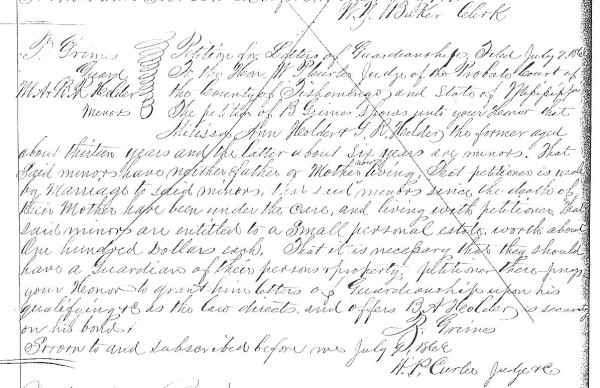 W. Y. Baker Clerk
B. Grimes Petition for Letters of Guardianship Filed July 9, 186
Guard To the Hon. W. P. Curlee Judge of the Probate Court of
M. A. & R. Holder the County of Tishomingo and State of Mississippi
minors The petition of B Grimes Shows unto your Honor that
Ann Holder & R. Holder, the former aged
about thirteen years and the latter about Six years are minors. That
said minors have neither Father or Mother now living. That petitioner is uncle
by Marriage to said minors, that said minors since the death of
their Mother have been under the care, and living with petitioner, That
said minors are entitled to a Small personal estate, worth about
One hundred Dollars each. That it is necessary that they should
have a Guardian of their persons & property; petitioner there prays
your Honor to grant him letters of Guardianship upon his
qualifying &c as the law directs, and offers B. A. Holder as security
on his bond;
B. Grimes
Sworn to and subscribed before me July 9, 186
W. P. Curlee Judge &c